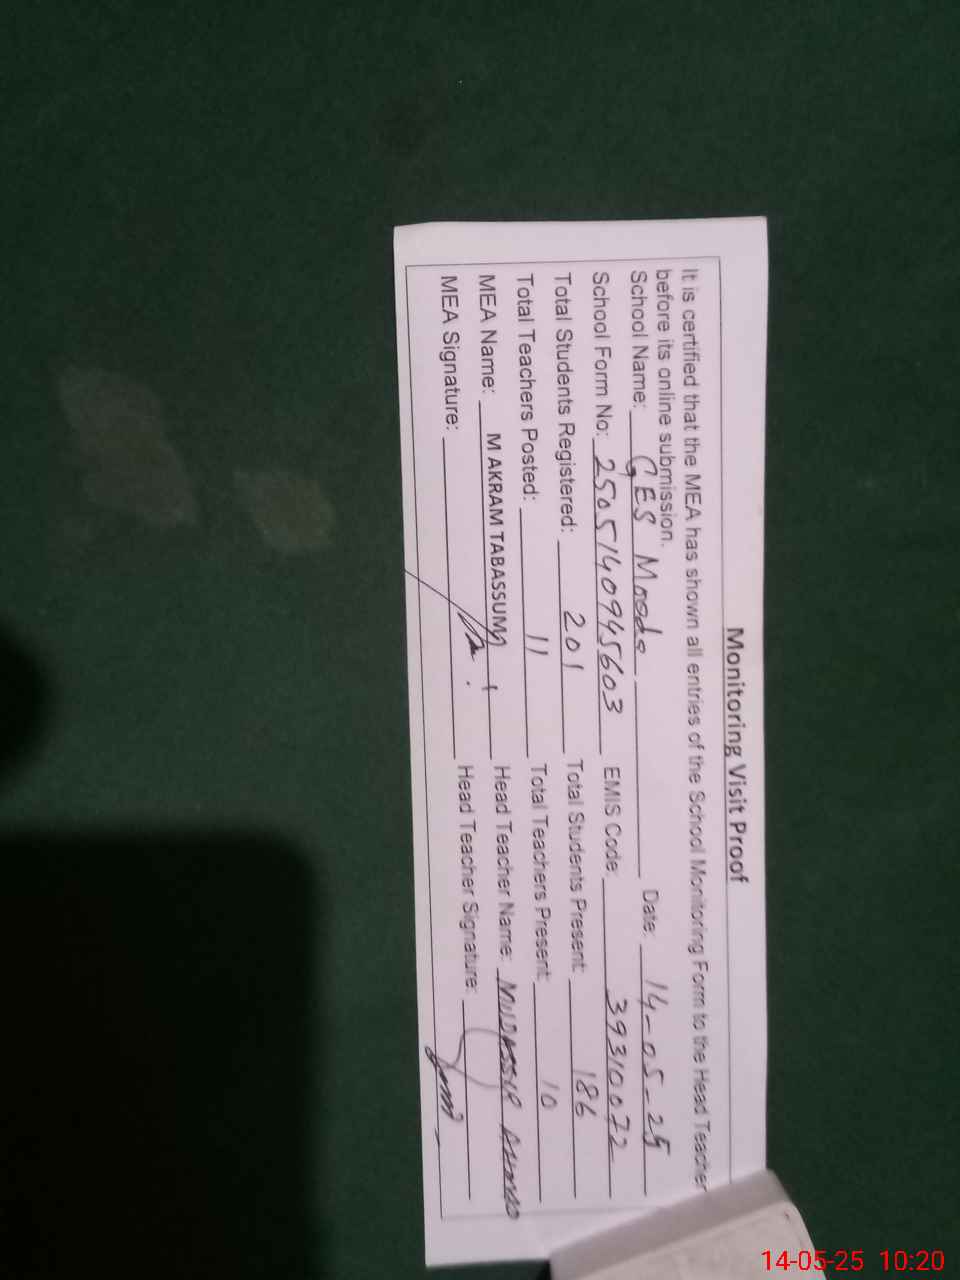 Monitoring Visit Proof
It is certified that the MEA has shown all entries of the School Monitoring Form to the Head Teacher
before its online submission.
School Name: GES Moode Date: 14-05-25
School Form No: 2505140945603 EMIS Code: 39310072
Total Students Registered: 201 Total Students Present: 186
Total Teachers Posted: 11 Total Teachers Present: 10
MEA Name: M AKRAM TABASSUM Head Teacher Name: MUDASSUR AHMAD
MEA Signature: Head Teacher Signature:
14-05-25 10:20